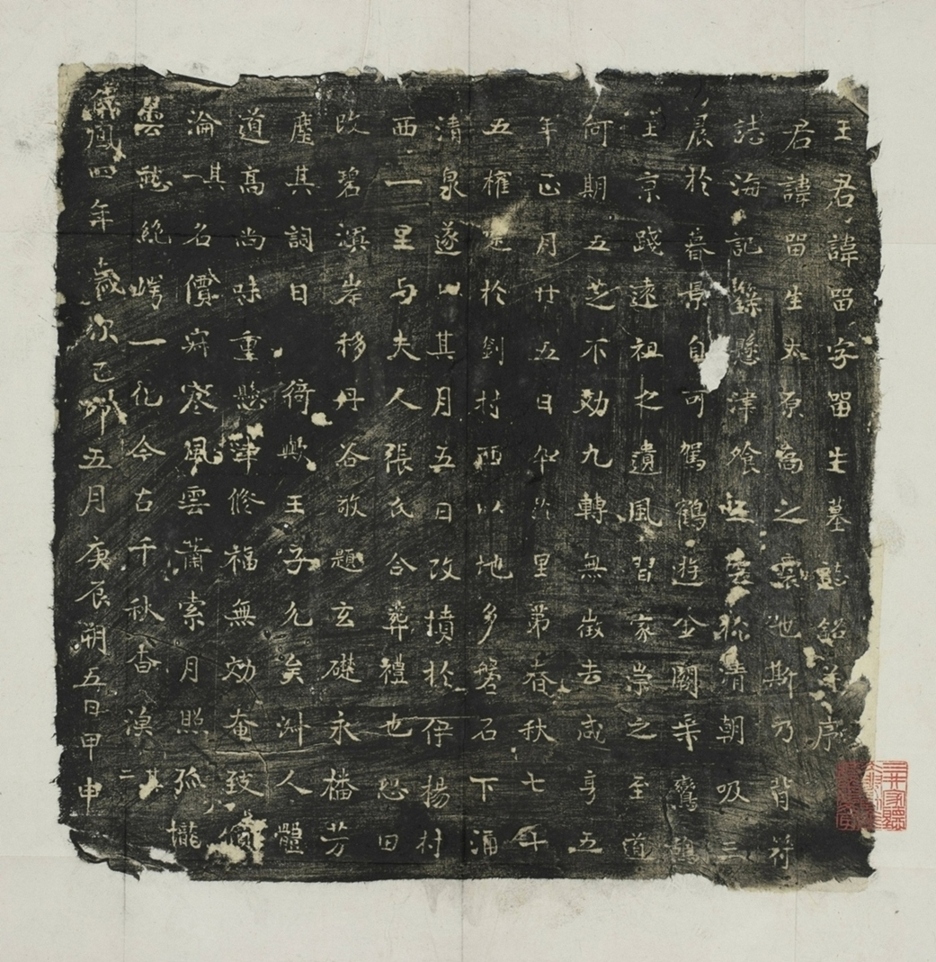 王君諱留字留生墓誌銘并序
君諱留生太原高之裔也斯乃背符
誌海記懸津飡清朝吸三
晨於暮景自可駕鶴遊金闕乘鸞
王京踐遠祖之遺風習家崇之至道
何期五芝不効九轉無徵去咸亨五
年正月廿五日卒於里第春秋七十
五權於劉村西以地多磐石下涌
清泉遂以其月五日改墳於伊楊村
西一里与夫人張氏合葬禮也恐田
改碧溟岸移丹谷敬題玄礎永播芳
塵其詞曰猗歟王子允矣洲人體
道高尚味重懸津修福無効奄致
淪其一名價寂寥風雲蕭索月照孤壠
雲愁絶嶀一化今古千秋杳漠其二
儀鳳四年歲次己卯五月庚辰朔五日甲申